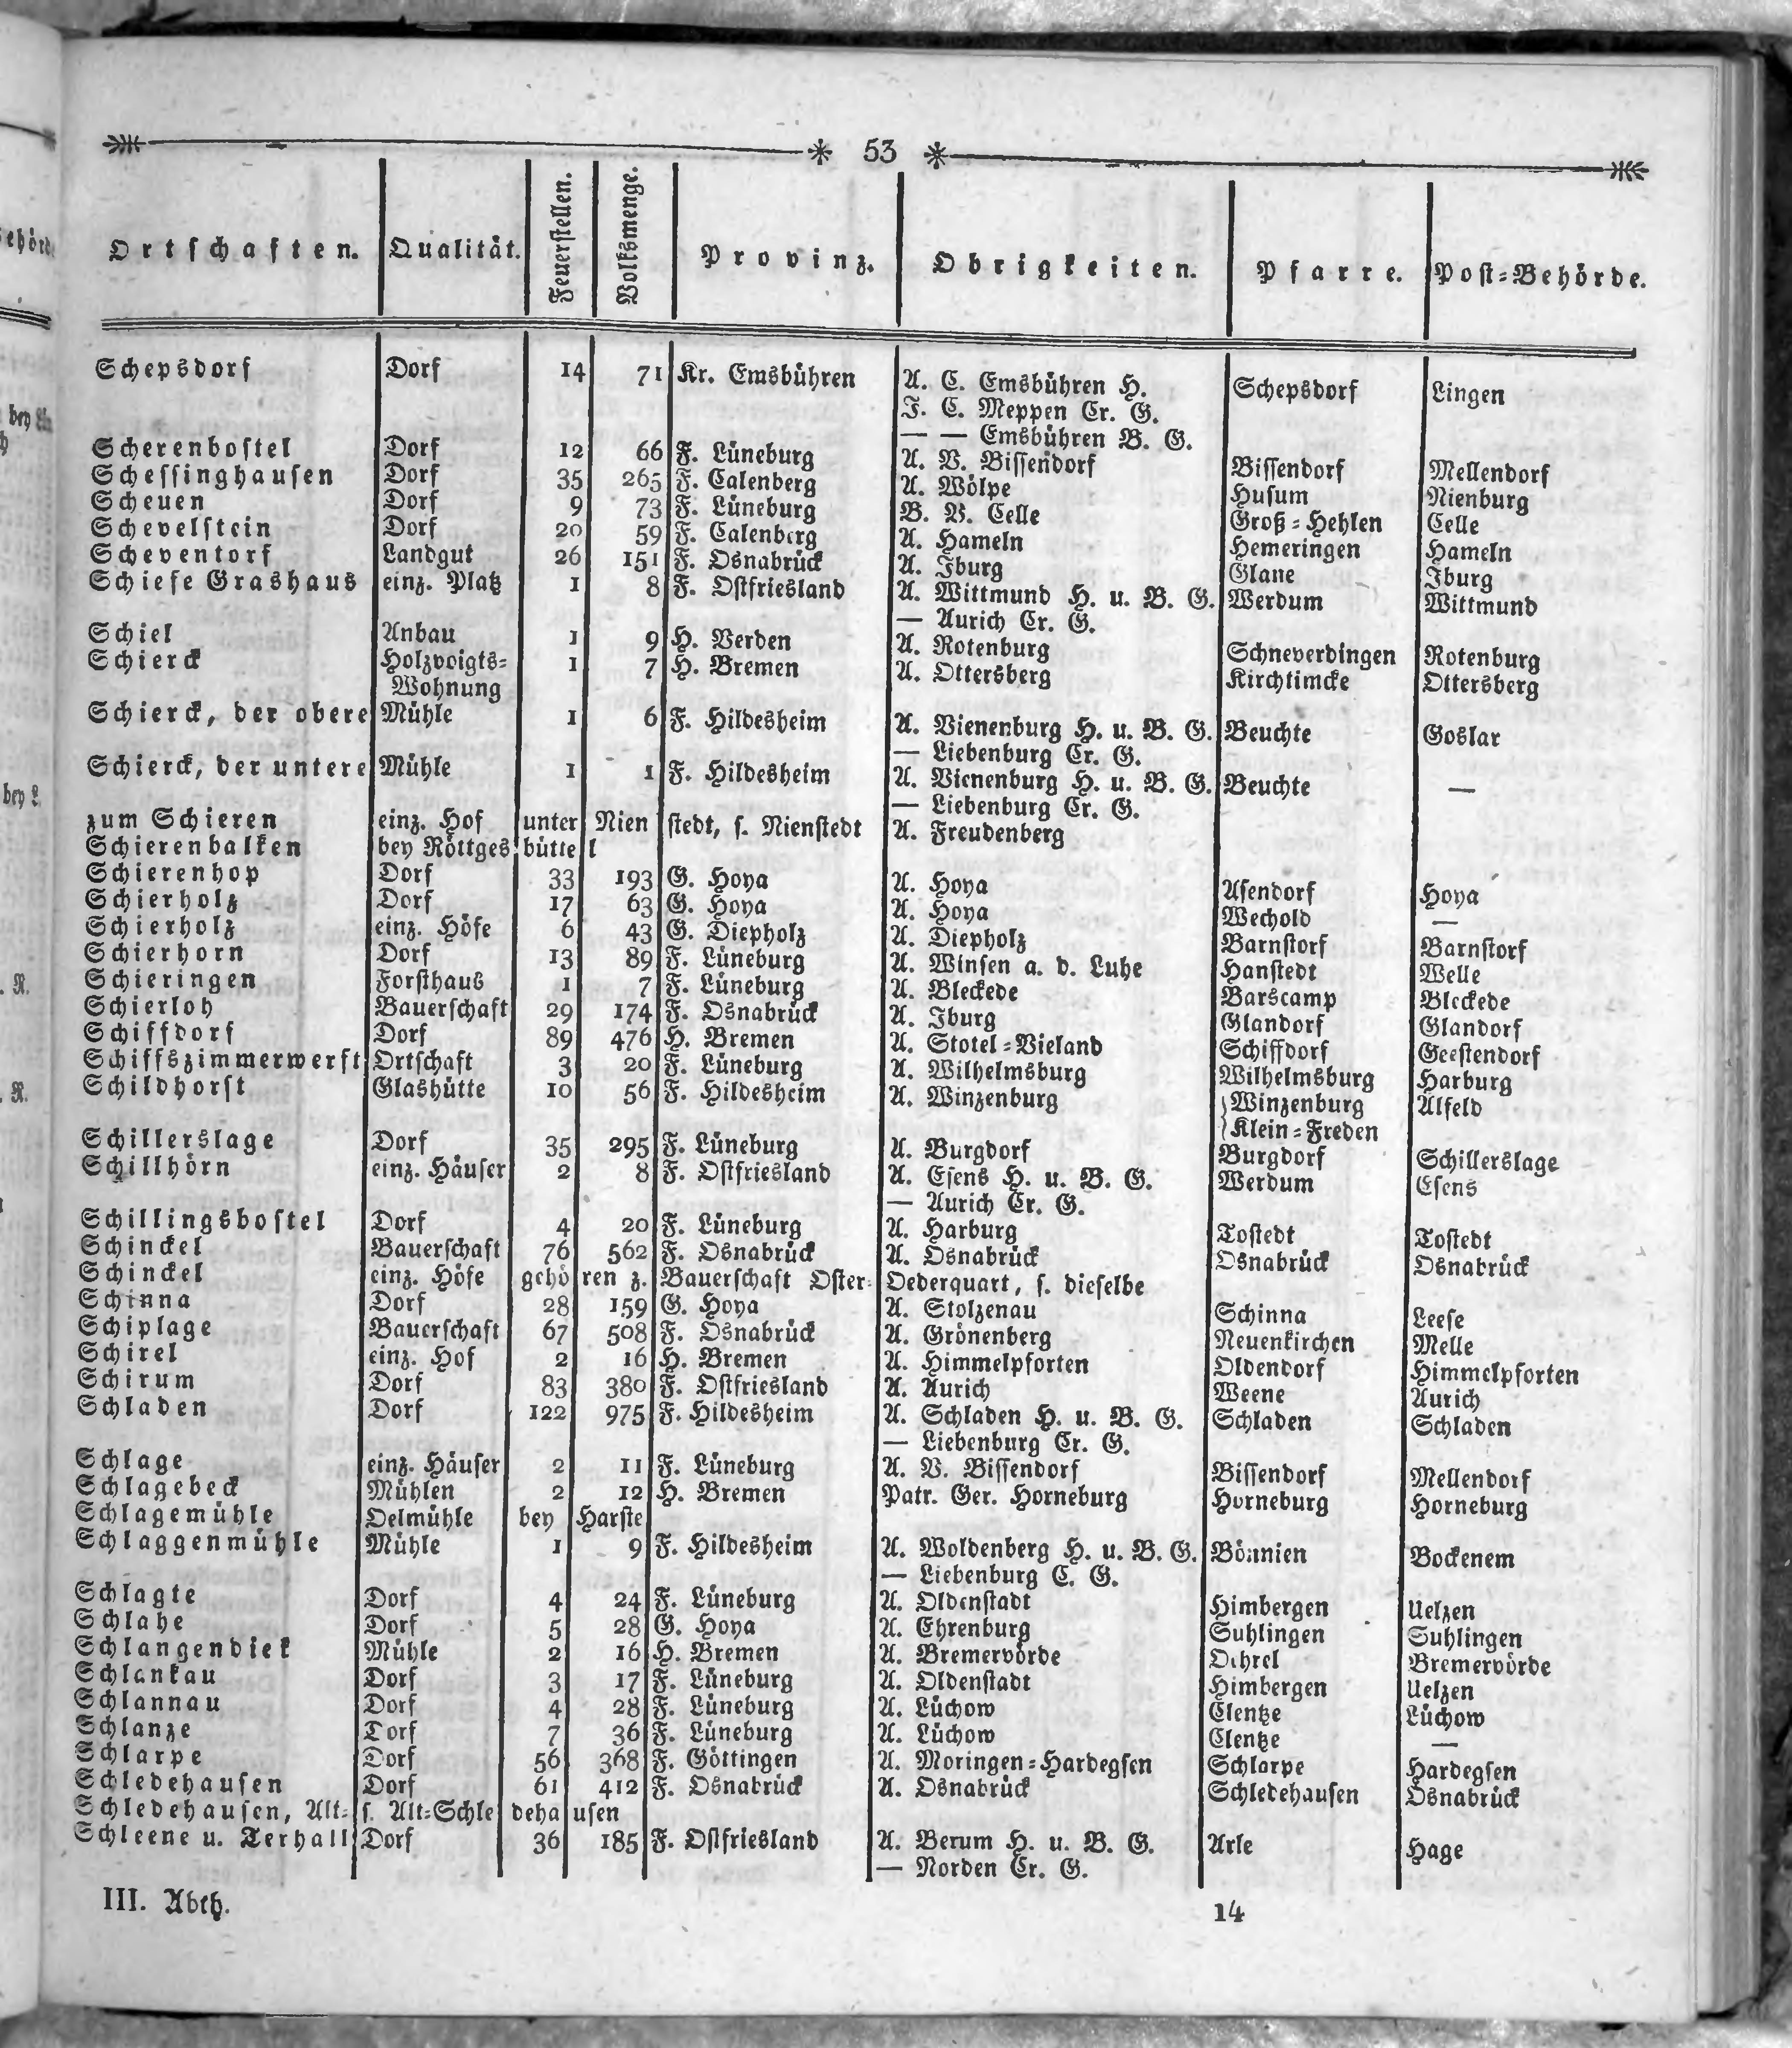 53
Ortschaften. Qualität. Feuerstellen. Volksmenge. Provinz. Obrigkeiten. Pfarre. Post-Behörde.
Schepsdorf Dorf 14 71 Kr. Emsbühren A. C. Emsbühren H. Schepsdorf Lingen
J. C. Meppen Cr. G.
— — Emsbühren B. G.
Scherenbostel Dorf 12 66 F. Lüneburg A. V. Bissendorf Bissendorf Mellendorf
Schessinghausen Dorf 35 265 F. Calenberg A. Wölpe Husum Nienburg
Scheuen Dorf 9 73 F. Lüneburg B. V. Celle Groß-Hehlen Celle
Schevelstein Dorf 20 59 F. Calenberg A. Hameln Hemeringen Hameln
Scheventorf Landgut 26 151 F. Osnabrück A. Iburg Glane Iburg
Schiefe Grashaus einz. Platz 1 8 F. Ostfriesland A. Wittmund H. u. B. G. Werdum Wittmund
— Aurich Cr. G.
Schiel Anbau 1 9 H. Verden A. Rotenburg Schneverdingen Rotenburg
Schierck Holzvoigts- 1 7 H. Bremen A. Ottersberg Kirchtimcke Ottersberg
Wohnung
Schierck, der obere Mühle 1 6 F. Hildesheim A. Vienenburg H. u. B. G. Beuchte Goslar
— Liebenburg Cr. G.
Schierck, der untere Mühle 1 1 F. Hildesheim A. Vienenburg H. u. B. G. Beuchte —
— Liebenburg Cr. G.
zum Schieren einz. Hof unter Nienstedt, s. Nienstedt A. Freudenberg
Schierenbalken bey Röttgesbüttel
Schierenhop Dorf 33 193 G. Hoya A. Hoya Asendorf Hoya
Schierholz Dorf 17 63 G. Hoya A. Hoya Wechold —
Schierholz einz. Höfe 6 43 G. Diepholz A. Diepholz Barnstorf Barnstorf
Schierhorn Dorf 13 89 F. Lüneburg A. Winsen a. d. Luhe Hanstedt Welle
Schieringen Forsthaus 1 7 F. Lüneburg A. Bleckede Barscamp Bleckede
Schierloh Bauerschaft 29 174 F. Osnabrück A. Iburg Glandorf Glandorf
Schiffdorf Dorf 89 476 H. Bremen A. Stotel-Vieland Schiffdorf Geestendorf
Schiffszimmerwerft Ortschaft 3 20 F. Lüneburg A. Wilhelmsburg Wilhelmsburg Harburg
Schildhorst Glashütte 10 56 F. Hildesheim A. Winzenburg }Winzenburg Alfeld
}Klein-Freden
Schillerslage Dorf 35 295 F. Lüneburg A. Burgdorf Burgdorf Schillerslage
Schillhörn einz. Häuser 2 8 F. Ostfriesland A. Esens H. u. B. G. Werdum Esens
— Aurich Cr. G.
Schillingsbostel Dorf 4 20 F. Lüneburg A. Harburg Tostedt Tostedt
Schinckel Bauerschaft 76 562 F. Osnabrück A. Osnabrück Osnabrück Osnabrück
Schinckel einz. Höfe gehören z. Bauerschaft Oster-Oederquart, s. dieselbe
Schinna Dorf 28 159 G. Hoya A. Stolzenau Schinna Leese
Schiplage Bauerschaft 67 508 F. Osnabrück A. Grönenberg Neuenkirchen Melle
Schirel einz. Hof 2 16 H. Bremen A. Himmelpforten Oldendorf Himmelpforten
Schirum Dorf 83 380 F. Ostfriesland A. Aurich Weene Aurich
Schladen Dorf 122 975 F. Hildesheim A. Schladen H. u. B. G. Schladen Schladen
— Liebenburg Cr. G.
Schlage einz. Häuser 2 11 F. Lüneburg A. V. Bissendorf Bissendorf Mellendorf
Schlagebeck Mühlen 2 12 H. Bremen Patr. Ger. Horneburg Horneburg Horneburg
Schlagemühle Oelmühle bey Harste
Schlaggenmühle Mühle 1 9 F. Hildesheim A. Woldenberg H. u. B. G. Bönnien Bockenem
— Liebenburg C. G.
Schlagte Dorf 4 24 F. Lüneburg A. Oldenstadt Himbergen Uelzen
Schlahe Dorf 5 28 G. Hoya A. Ehrenburg Suhlingen Suhlingen
Schlangendiek Mühle 2 16 H. Bremen A. Bremervörde Oehrel Bremervörde
Schlankau Dorf 3 17 F. Lüneburg A. Oldenstadt Himbergen Uelzen
Schlannau Dorf 4 28 F. Lüneburg A. Lüchow Clentze Lüchow
Schlanze Dorf 7 36 F. Lüneburg A. Lüchow Clentze —
Schlarpe Dorf 56 368 F. Göttingen A. Moringen-Hardegsen Schlarpe Hardegsen
Schledehausen Dorf 61 412 F. Osnabrück A. Osnabrück Schledehausen Osnabrück
Schledehausen, Alt- s. Alt-Schledehausen
Schleene u. Terhall Dorf 36 185 F. Ostfriesland A. Berum H. u. B. G. Arle Hage
— Norden Cr. G.
III. Abth. 14